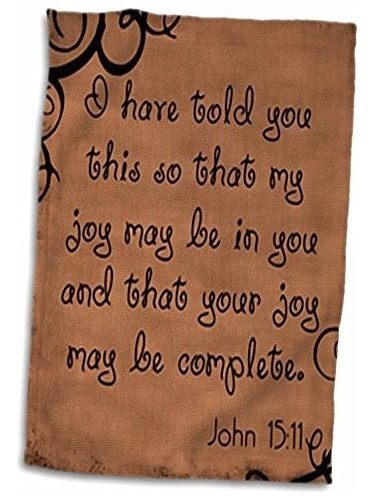 I have told you
this so that my
joy may be in you
and that your joy
may be complete.
John 15:11